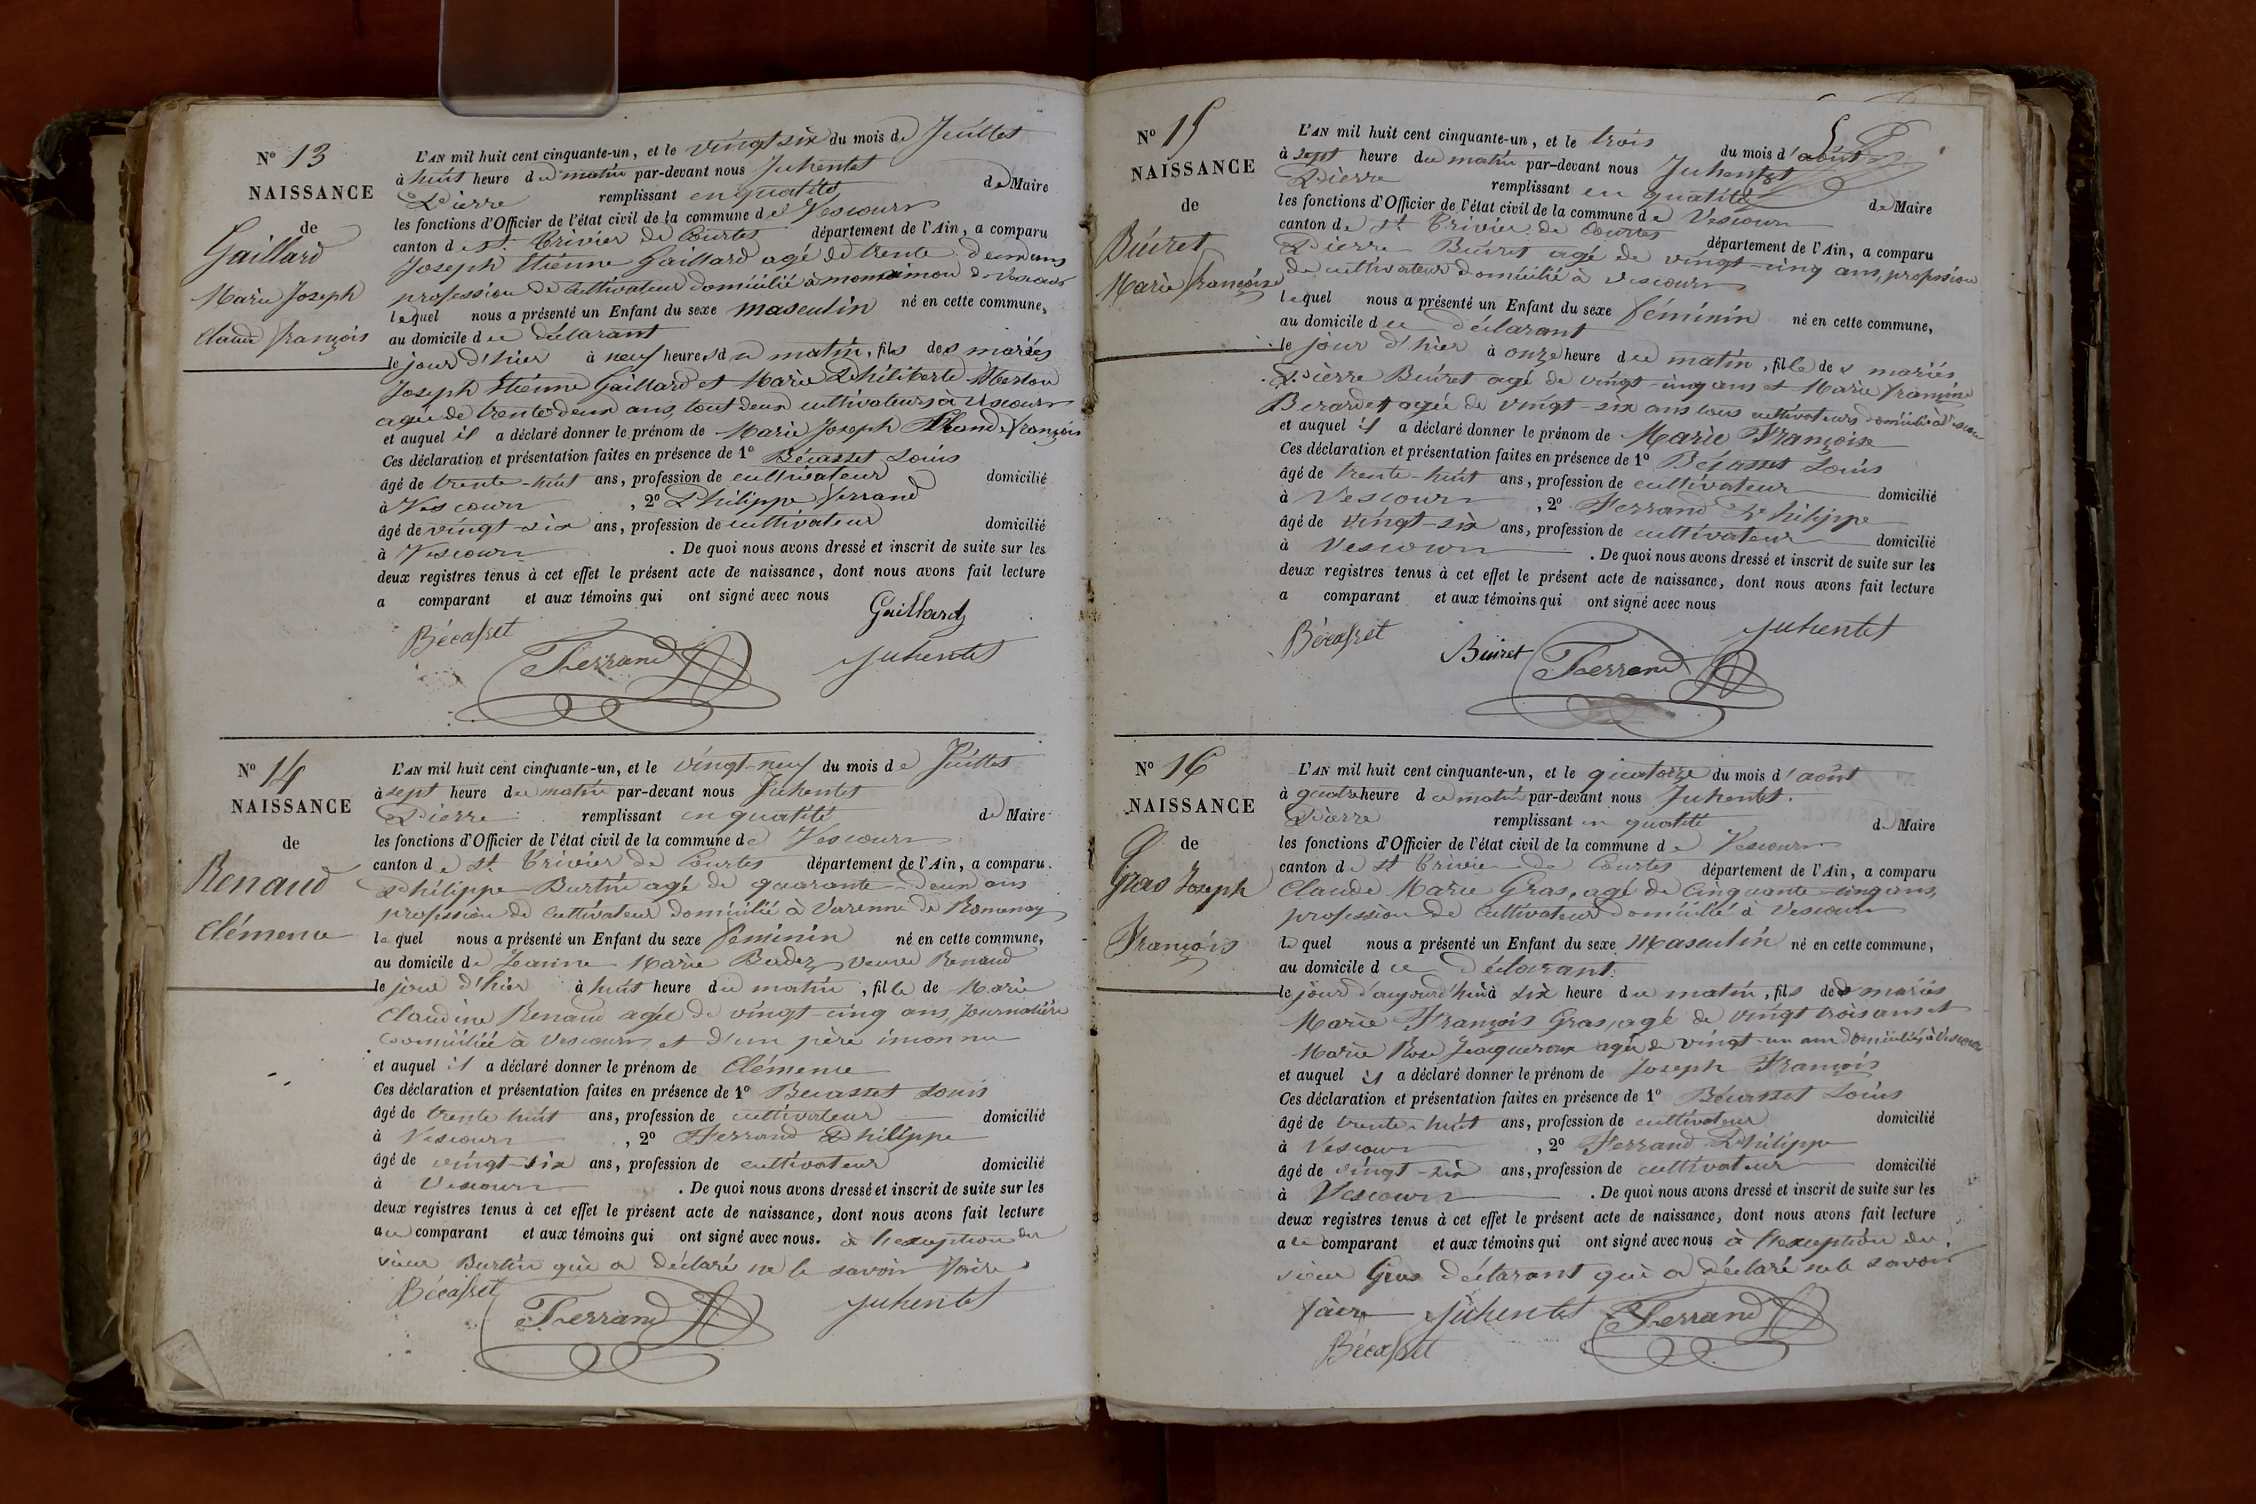 N° 13
NAISSANCE
de
Gaillard
Marie Joseph
Claude françois
L'AN mil huit cent cinquante-un, et le vingt six du mois de Juillet
à huit heure du matin par-devant nous Juhentet
Pierre remplissant en qualité de Maire
les fonctions d'Officier de l'état civil de la commune de Vescours
canton de St. Trivier de Courtes département de l'Ain, a comparu
Joseph Etiénne Gaillard agé de trente deux ans
profession de cultivateur domicilié à Vescours
lequel nous a présenté un Enfant du sexe masculin né en cette commune,
au domicile du déclarant
le jour d'hier à neuf heures du matin, fils des mariés
Joseph Etiénne Gaillard et Marie Philiberte
agée de trente deux ans, tout deux cultivateurs à Vescours
et auquel il a déclaré donner le prénom de Marie Joseph Claude françois
Ces déclaration et présentation faites en présence de 1° Bécasset Louis
âgé de trente-huit ans, profession de cultivateur domicilié
à Vescours , 2° Philippe ferrand
âgé de vingt-six ans, profession de cultivateur domicilié
à Vescours . De quoi nous avons dressé et inscrit de suite sur les
deux registres tenus à cet effet le présent acte de naissance, dont nous avons fait lecture
a comparant et aux témoins qui ont signé avec nous
Gaillard
Bécasset Ferrand Juhentet
N° 14
NAISSANCE
de
Renaud
Clémence
L'AN mil huit cent cinquante-un, et le vingt-neuf du mois de Juillet
à sept heure du matin par-devant nous Juhentet
Pierre remplissant en qualité de Maire
les fonctions d'Officier de l'état civil de la commune de Vescours
canton de St. Trivier de Courtes département de l'Ain, a comparu
Philippe Burtin agé de quarante-deux ans
profession de cultivateur domicilié à Varenne de Romenay
lequel nous a présenté un Enfant du sexe féminin né en cette commune,
au domicile de Jeanne Marie veuve Renaud
le jour d'hier à huit heure du matin, fille de Marie
Claudine Renaud agée de vingt-cinq ans, Journalière
domiciliée à Vescours et d'un père inconnu
et auquel il a déclaré donner le prénom de Clémence
Ces déclaration et présentation faites en présence de 1° Becasset Louis
âgé de trente huit ans, profession de cultivateur domicilié
à Vescours , 2° Ferrand Philippe
âgé de vingt-six ans, profession de cultivateur domicilié
à Vescours . De quoi nous avons dressé et inscrit de suite sur les
deux registres tenus à cet effet le présent acte de naissance, dont nous avons fait lecture
au comparant et aux témoins qui ont signé avec nous. à l'exception du
sieur Burtin qui a déclaré ne le savoir faire
Bécasset Ferrand Juhentet
N° 15
NAISSANCE
de
Buiret
Marie françoise
L'AN mil huit cent cinquante-un, et le trois du mois d'août
à sept heure du matin par-devant nous Juhentet
Pierre remplissant en qualité de Maire
les fonctions d'Officier de l'état civil de la commune de Vescours
canton de St Trivier de Courtes département de l'Ain, a comparu
Pierre Buiret agé de vingt-cinq ans, profession
de cultivateur domicilié à Vescours
lequel nous a présenté un Enfant du sexe féminin né en cette commune,
au domicile du déclarant
le jour d'hier à onze heure du matin, fille des mariés
Pierre Buiret agé de vingt-cinq ans et Marie françoise
Berardet agée de vingt-six ans tous cultivateurs domicilié à Vescours
et auquel il a déclaré donner le prénom de Marie Françoise
Ces déclaration et présentation faites en présence de 1° Bécasset Louis
âgé de trente-huit ans, profession de cultivateur domicilié
à Vescours , 2° Ferrand Philippe
âgé de vingt-six ans, profession de cultivateur domicilié
à Vescours . De quoi nous avons dressé et inscrit de suite sur les
deux registres tenus à cet effet le présent acte de naissance, dont nous avons fait lecture
a comparant et aux témoins qui ont signé avec nous
Bécasset Buiret Ferrand Juhentet
N° 16
NAISSANCE
de
Gras Joseph
François
L'AN mil huit cent cinquante-un, et le quatorze du mois d'août
à quatre heure du matin par-devant nous Juhentet.
Pierre remplissant en qualité de Maire
les fonctions d'Officier de l'état civil de la commune de Vescours
canton de St Trivier de Courtes département de l'Ain, a comparu
Claude Marie Gras, agé de Cinquante-cinq ans,
profession de cultivateur domicilié à Vescours
lequel nous a présenté un Enfant du sexe Masculin né en cette commune,
au domicile du déclarant.
le jour d'aujourd'hui à six heure du matin, fils des mariés
Marie François Gras, agé de vingt trois ans et
Marie Rose agée de vingt-un ans domiciliés à Vescours
et auquel il a déclaré donner le prénom de Joseph François
Ces déclaration et présentation faites en présence de 1° Bécasset Louis
âgé de trente-huit ans, profession de cultivateur domicilié
à Vescours , 2° Ferrand Philippe
âgé de vingt-six ans, profession de cultivateur domicilié
à Vescours . De quoi nous avons dressé et inscrit de suite sur les
deux registres tenus à cet effet le présent acte de naissance, dont nous avons fait lecture
a comparant et aux témoins qui ont signé avec nous à l'exception du
sieur Gras déclarant qui a déclaré ne le savoir
faire Juhentet Ferrand
Bécasset